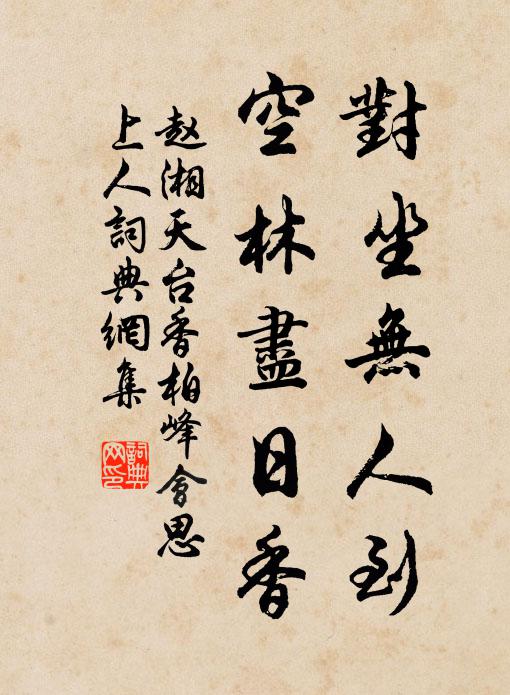 對坐無人到
空林盡日香
赵湘天台香柏峰會思
上人詞典網集
詞典
网印